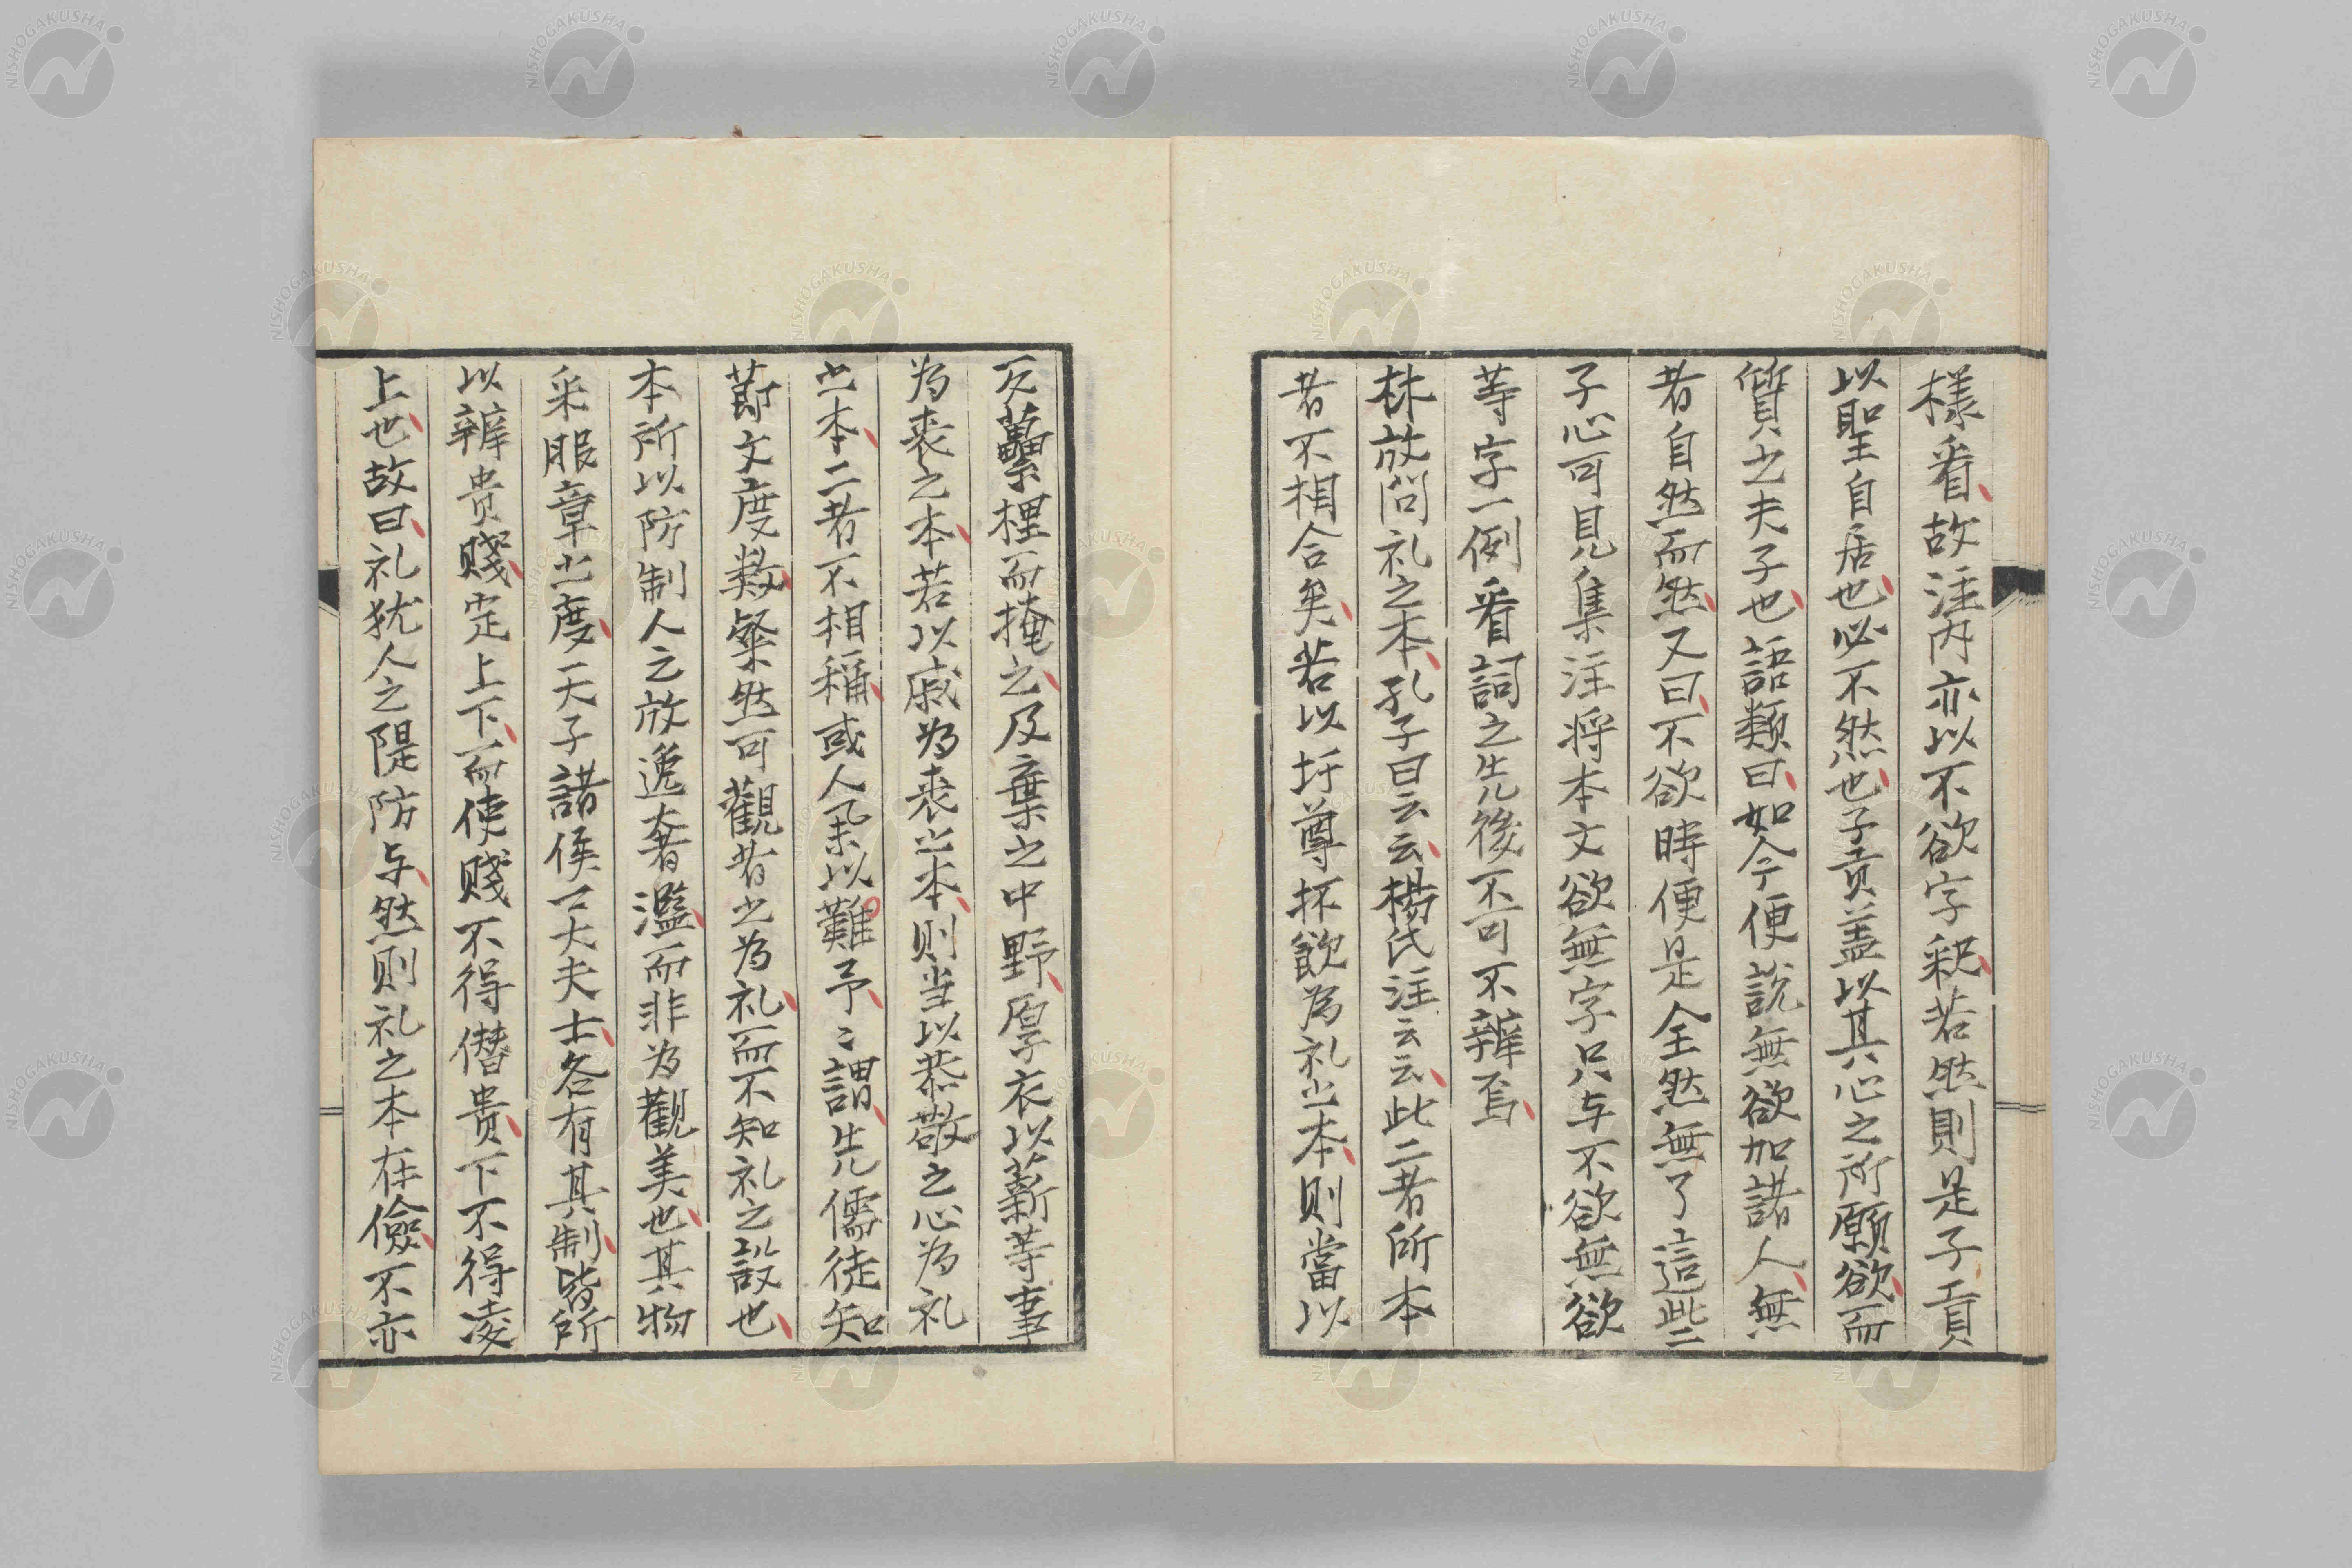 様看故注内亦以不欲字釈若然則是子貢
以聖自居也必不然也子貢盖以其心之所願欲而
質之夫子也語類曰如今便説無欲加諸人無
者自然而然又曰不欲時便是全然無了這些二
子心可見集注将本文欲無字只与不欲無欲
等字一例看詞之先後不可不辨焉
林放問礼之本孔子曰云云楊氏注云云此二者所本
者不相合矣若以圩尊抔飲為礼之本則當以
反虆梩而掩之及棄之中野厚衣以薪等事
為喪之本若以戚為喪之本則当以恭敬之心為礼
之本二者不相稱或人采以難予々謂先儒徒知
節文度数粲然可觀者之為礼而不知礼之設也
本所以防制人之放逸奢濫而非為觀美也其物
采服章之度天子諸侯下大夫士各有其制皆所
以辨貴賤定上下而使賤不得僭貴下不得凌
上也故曰礼犹人之隄防与然則礼之本在儉不亦
NISHOGAKUSHA